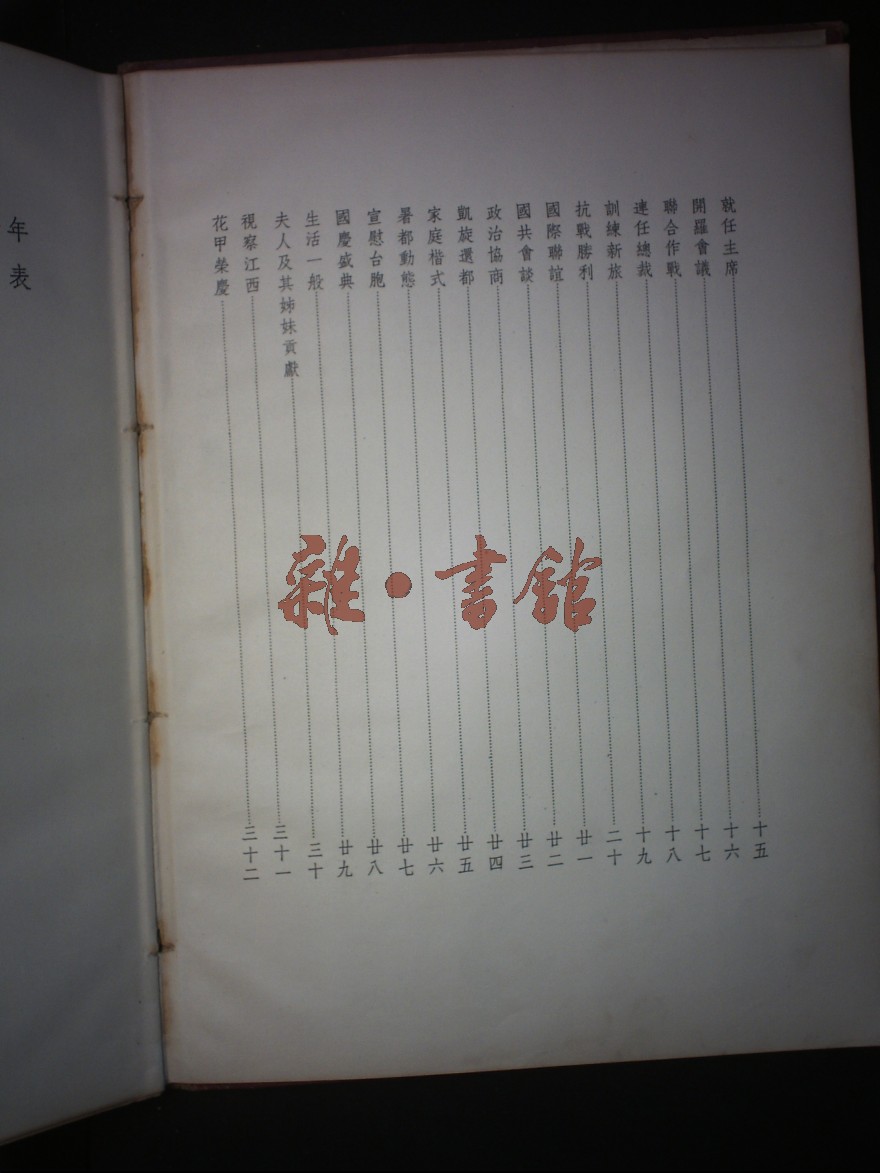 就任主席……十五
開羅會議……十六
聯合作戰……十七
連任總裁……十八
訓練新旅……十九
抗戰勝利……二十
國際聯誼……廿一
國共會談……廿二
政治協商……廿三
凱旋還都……廿四
家庭楷式……廿五
暑都動態……廿六
宣慰台胞……廿七
國慶盛典……廿八
生活一般……廿九
夫人及其姊妹貢獻……三十
視察江西……三十一
花甲榮慶……三十二
年表
雜·書館